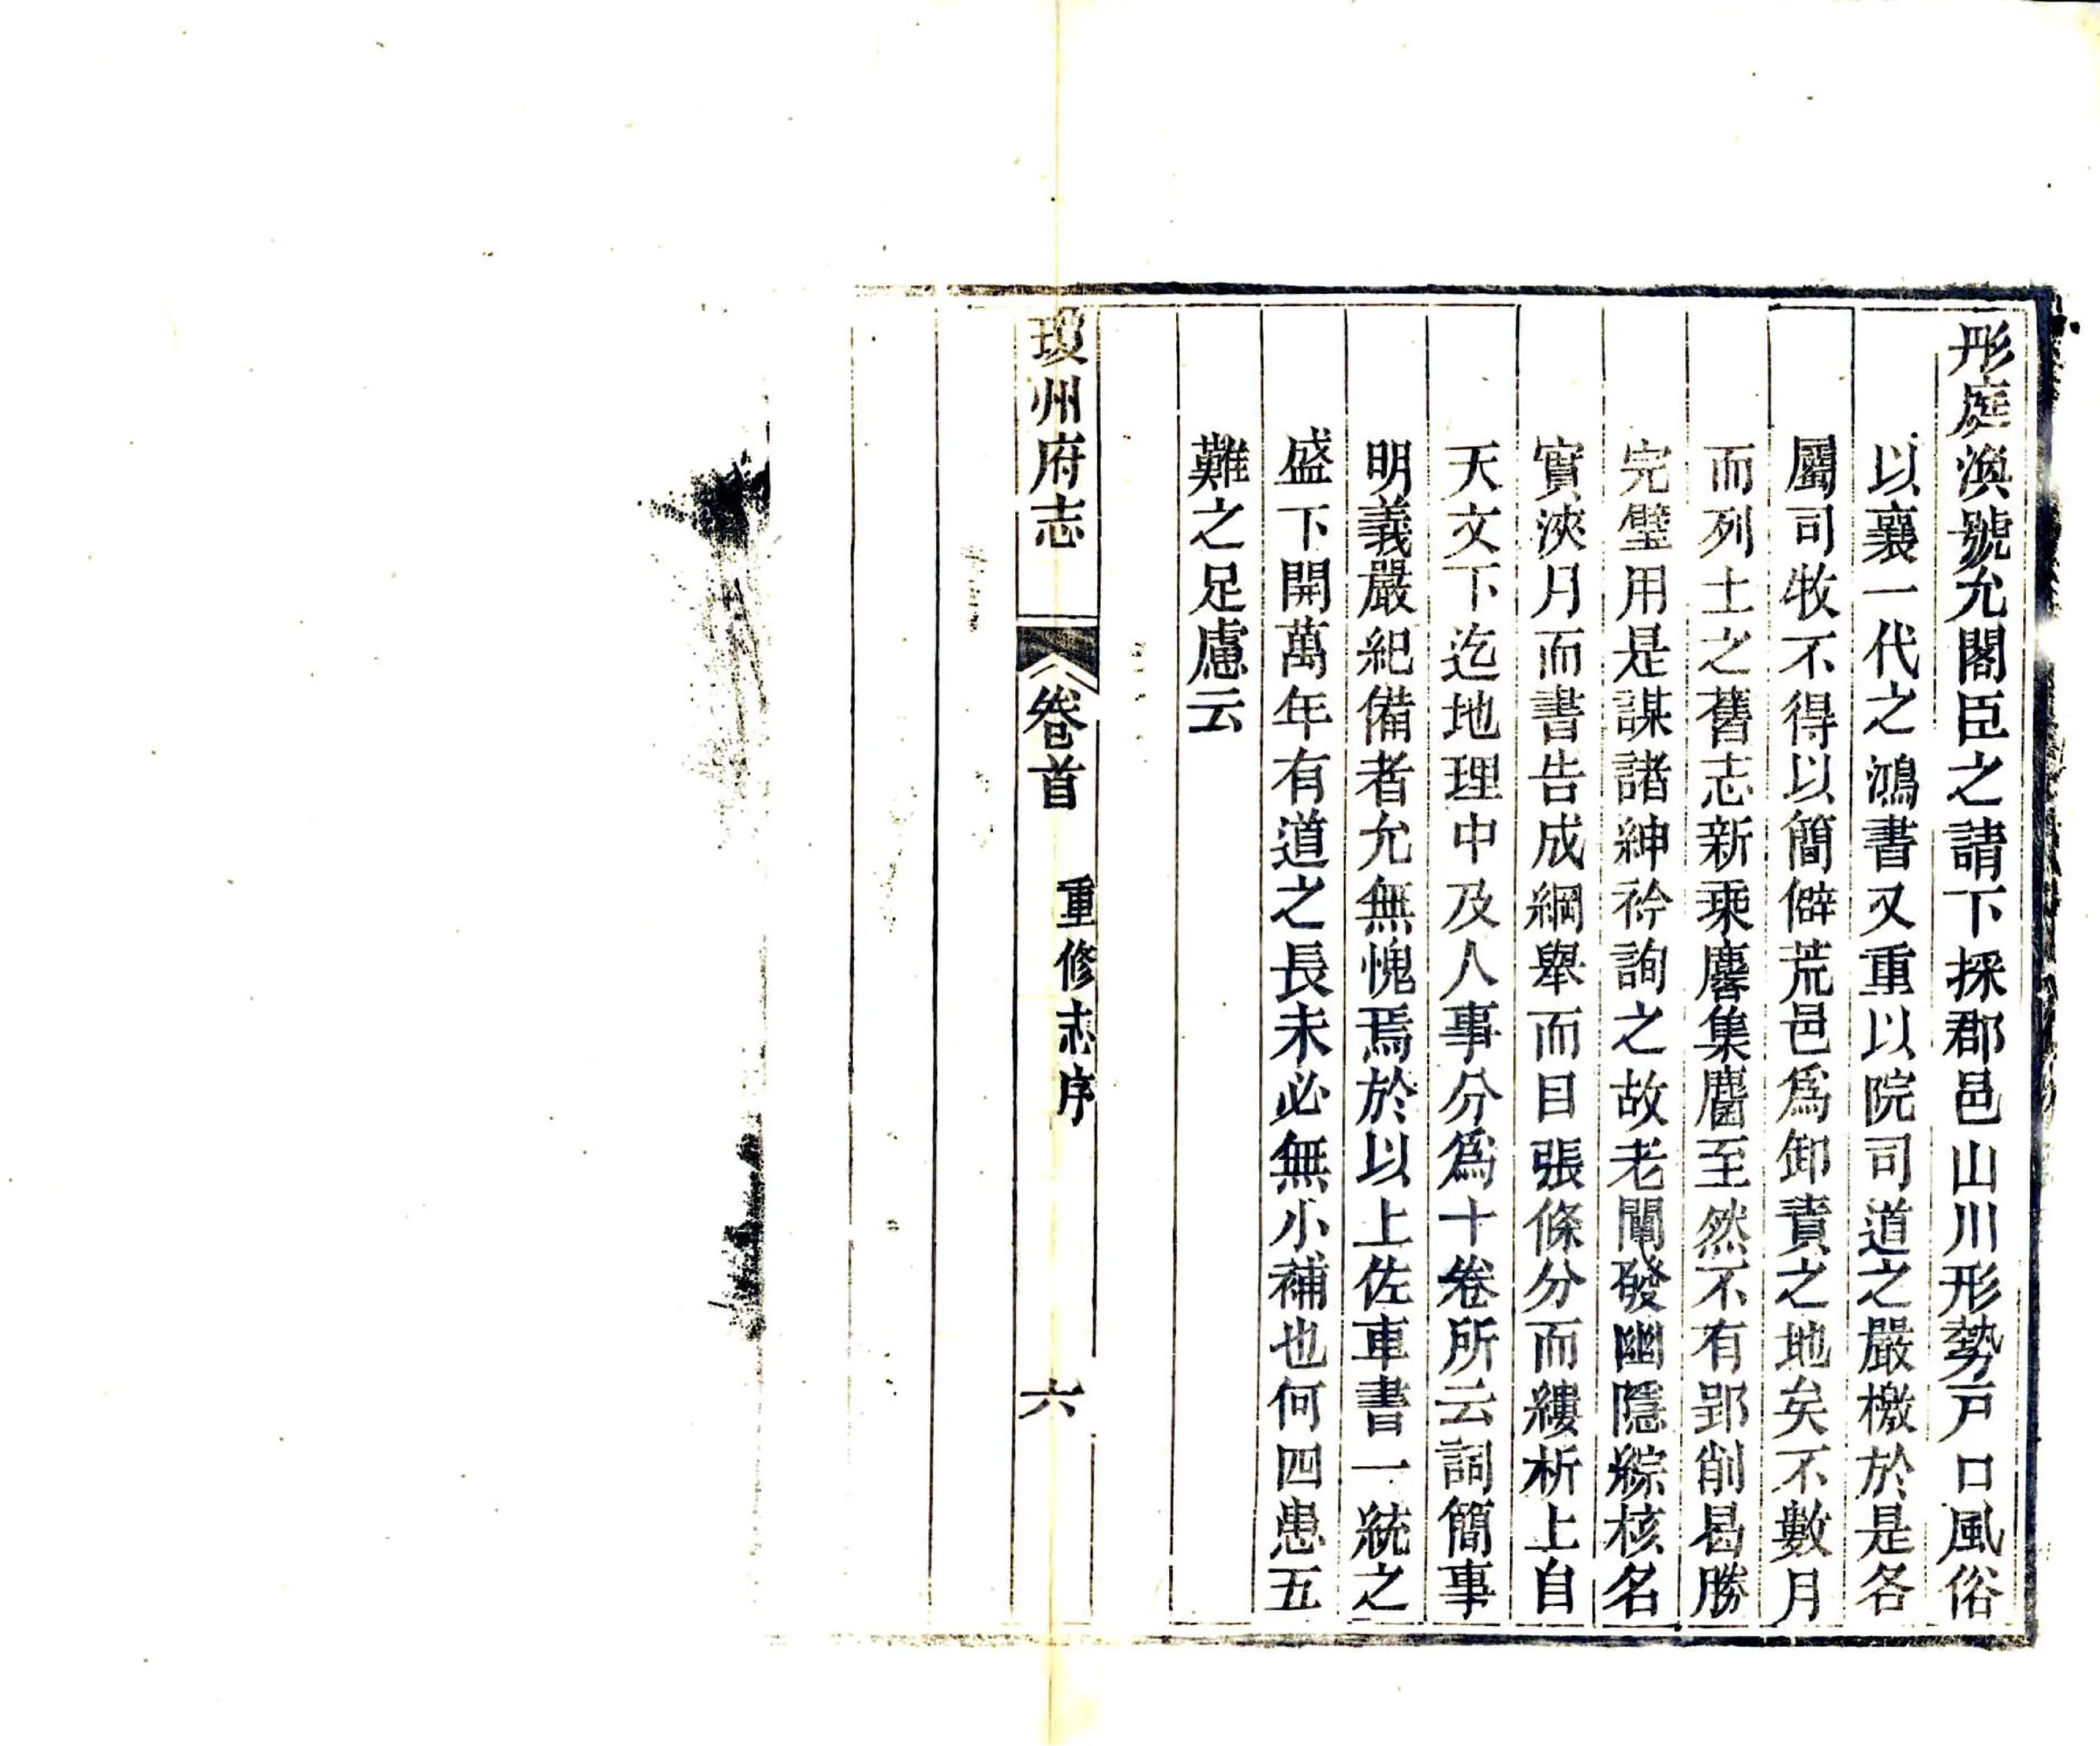 彤庭渙號允閣臣之請下採郡邑山川形勢戸口風俗
以襄一代之鴻書又重以院司道之嚴檄於是各
屬司牧不得以簡僻荒邑爲卸責之地矣不數月
而列土之舊志新乘麏集麕至然不有郢削曷勝
完璧用是謀諸紳衿詢之故老闡發幽隱綜核名
實浹月而書告成綱舉而目張條分而縷析上自
天文下迄地理中及人事分爲十卷所云詞簡事
明義嚴紀備者允無愧焉於以上佐車書一統之
盛下開萬年有道之長未必無小補也何四患五
難之足慮云
瓊州府志 卷首 重修志序 六